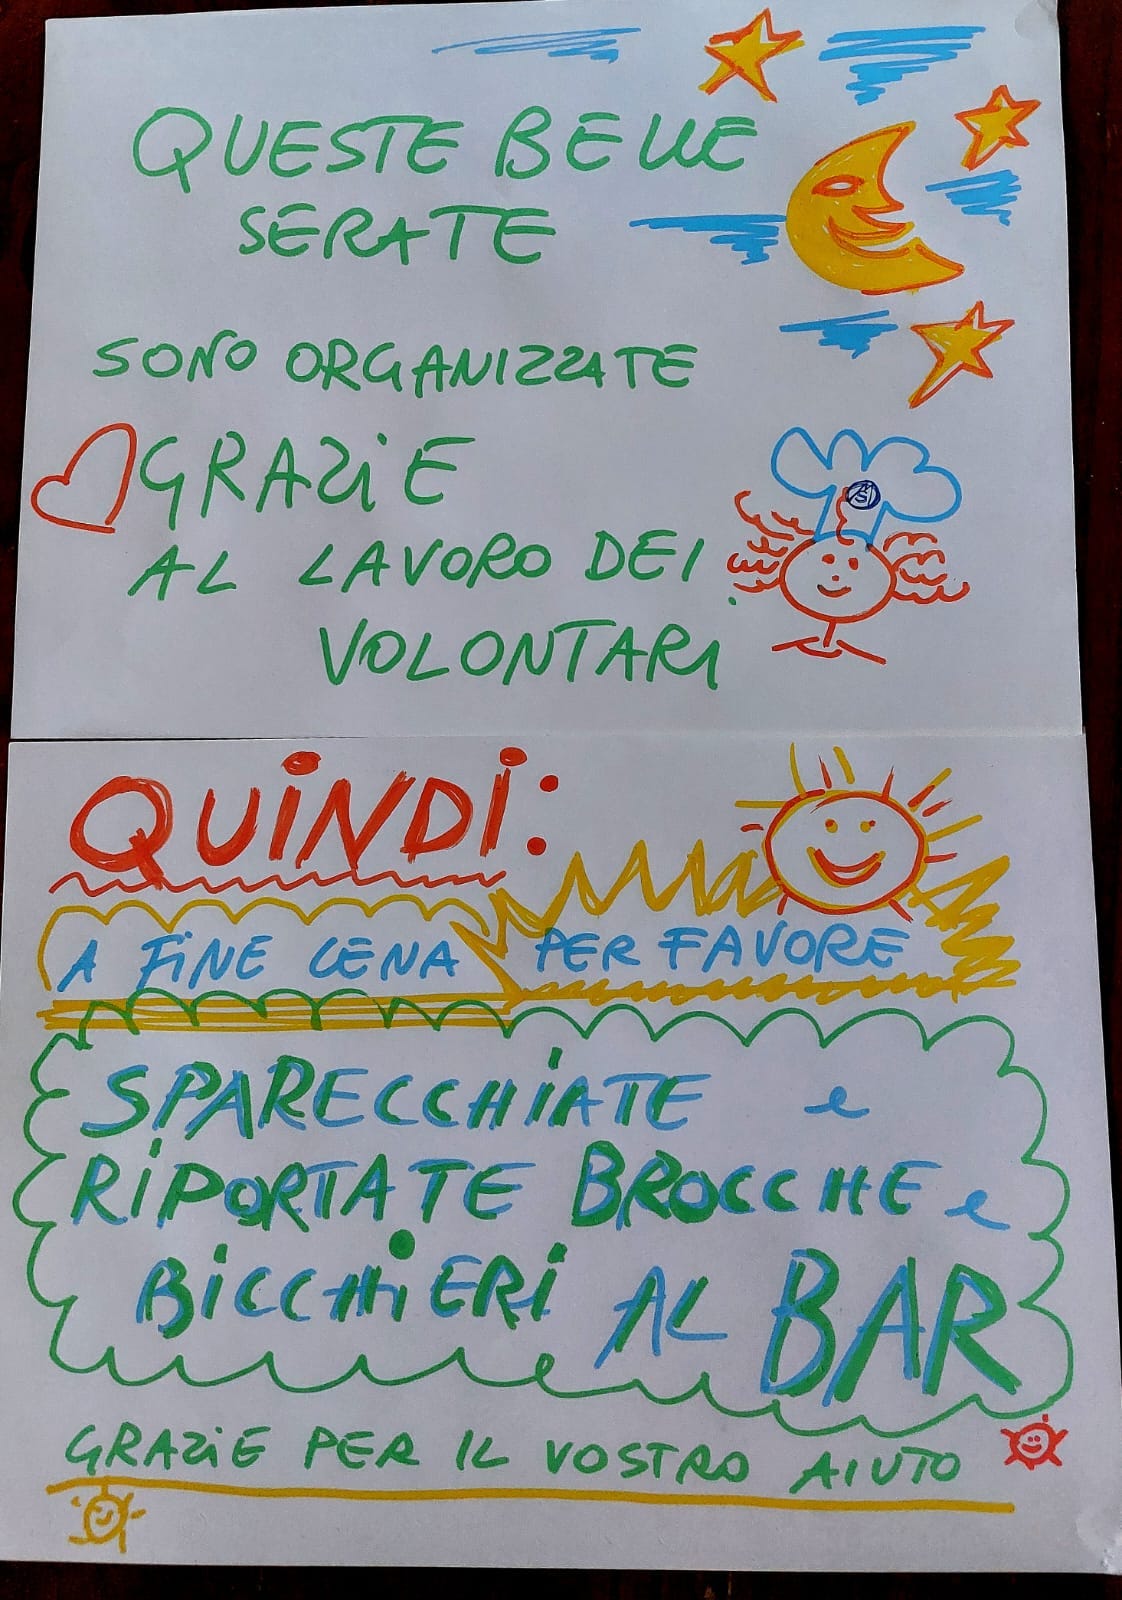 QUESTE BELLE
SERATE
SONO ORGANIZZATE
GRAZiE
AL LAVORO DEI
VOLONTARI
QUiNDi:
A FiNE CENA PER FAVORE
SPARECCHiATE e
RiPORTATE BROCCHE e
BiCCHiERi AL BAR
GRAZiE PER IL VOSTRO AIUTO